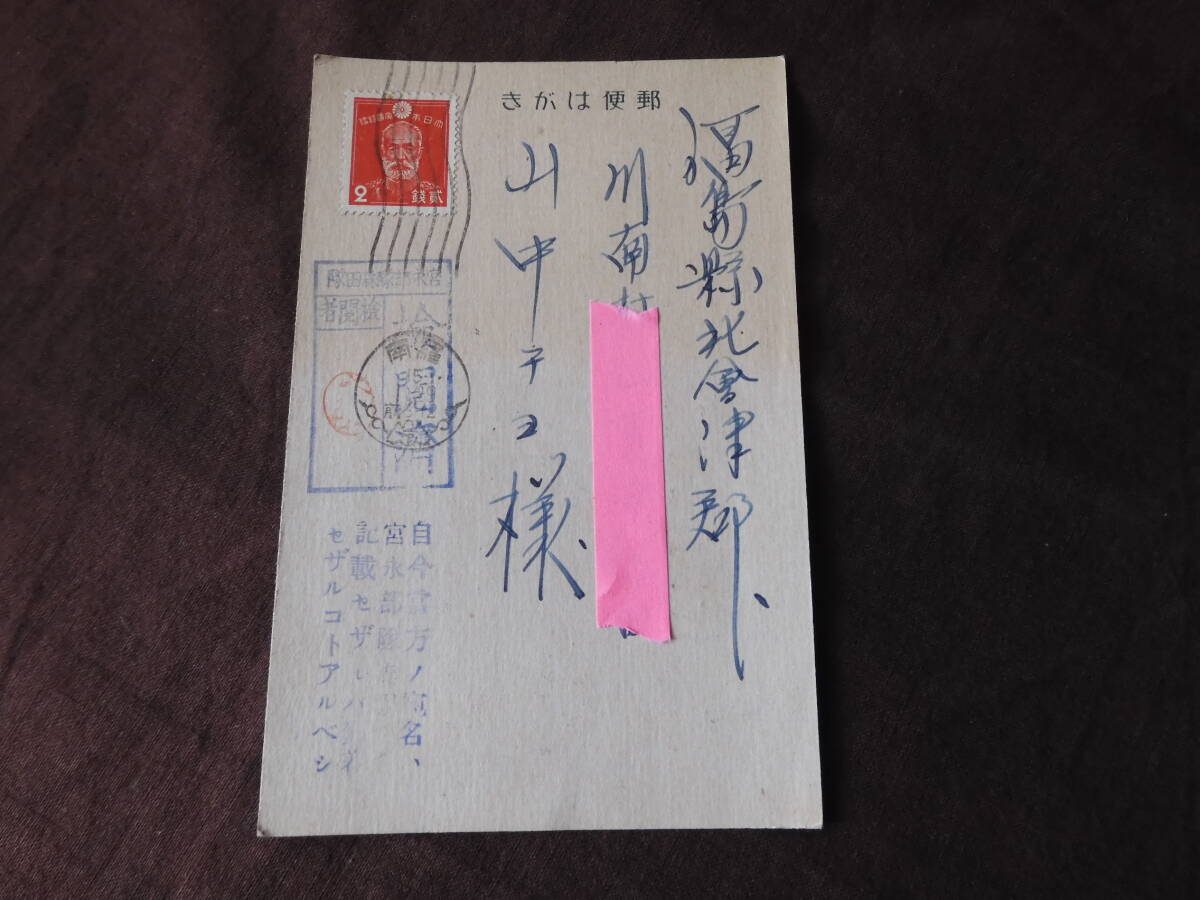 郵便はがき
大日本帝國郵便
2
貳銭
福島縣北會津郡
川南村
山中テヨ様
宮永部隊森田隊
検閲者
検閲済
羅南
自今當方ノ宛名、
宮永部隊
記載セザレバ
セザルコトアルベシ